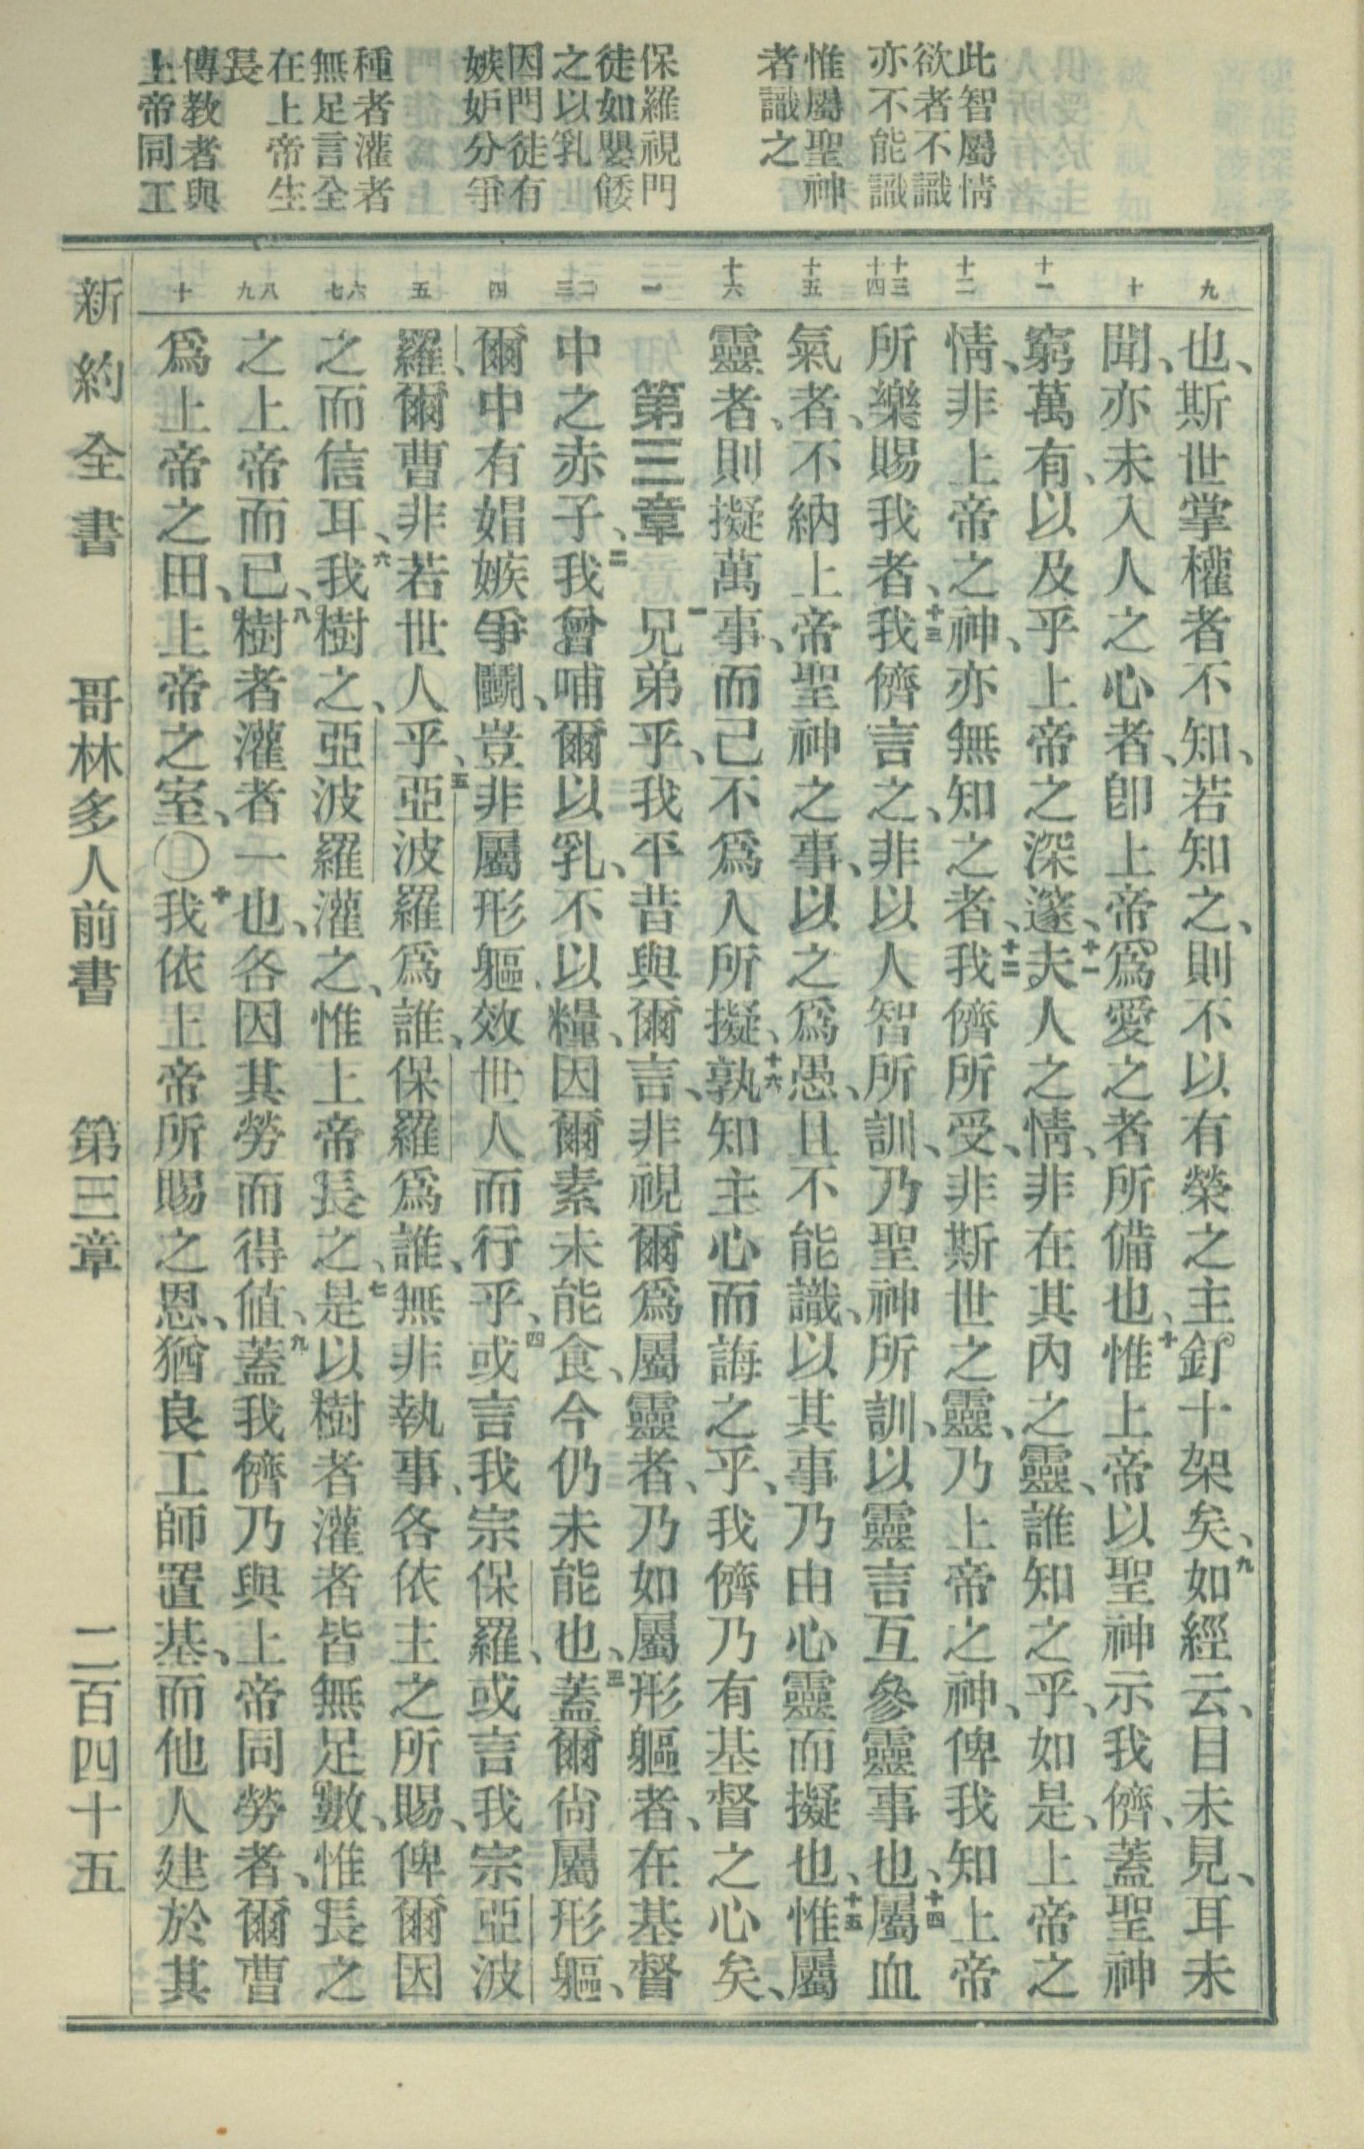 此智屬情
欲者不識
亦不能識
惟屬聖神
者識之
保羅視門
徒如嬰餧
之以乳
因門徒有
嫉妒分爭
種者灌者
無足言全
在上帝生
長
傳教者與
上帝同工
九
十
十一
十二
十三 十四
十五
十六
一
二 三
四
五
六 七
八 九
十
也、斯世掌權者不知、若知之、則不以有榮之主釘十架矣、九如經云、目未見、耳未
聞、亦未入人之心者、卽上帝爲愛之者所備也、十惟上帝以聖神示我儕、蓋聖神
窮萬有、以及乎上帝之深邃、十一夫人之情、非在其內之靈、誰知之乎、如是、上帝之
情、非上帝之神、亦無知之者、十二我儕所受、非斯世之靈、乃上帝之神、俾我知上帝
所樂賜我者、十三我儕言之、非以人智所訓、乃聖神所訓、以靈言互參靈事也、十四屬血
氣者、不納上帝聖神之事、以之爲愚、且不能識、以其事乃由心靈而擬也、十五惟屬
靈者、則擬萬事、而己不爲人所擬、十六孰知主心而誨之乎、我儕乃有基督之心矣、
第三章 一兄弟乎、我平昔與爾言、非視爾爲屬靈者、乃如屬形軀者、在基督
中之赤子、二我曾哺爾以乳、不以糧、因爾素未能食、今仍未能也、三蓋爾尙屬形軀、
爾中有娼嫉爭鬭、豈非屬形軀效世人而行乎、四或言我宗保羅、或言我宗亞波
羅、爾曹非若世人乎、五亞波羅爲誰、保羅爲誰、無非執事、各依主之所賜、俾爾因
之而信耳、六我樹之、亞波羅灌之、惟上帝長之、七是以樹者灌者皆無足數、惟長之
之上帝而已、八樹者灌者一也、各因其勞而得値、九蓋我儕乃與上帝同勞者、爾曹
爲上帝之田、上帝之室、〇十我依上帝所賜之恩、猶良工師置基、而他人建於其
新約全書 哥林多人前書 第三章 二百四十五